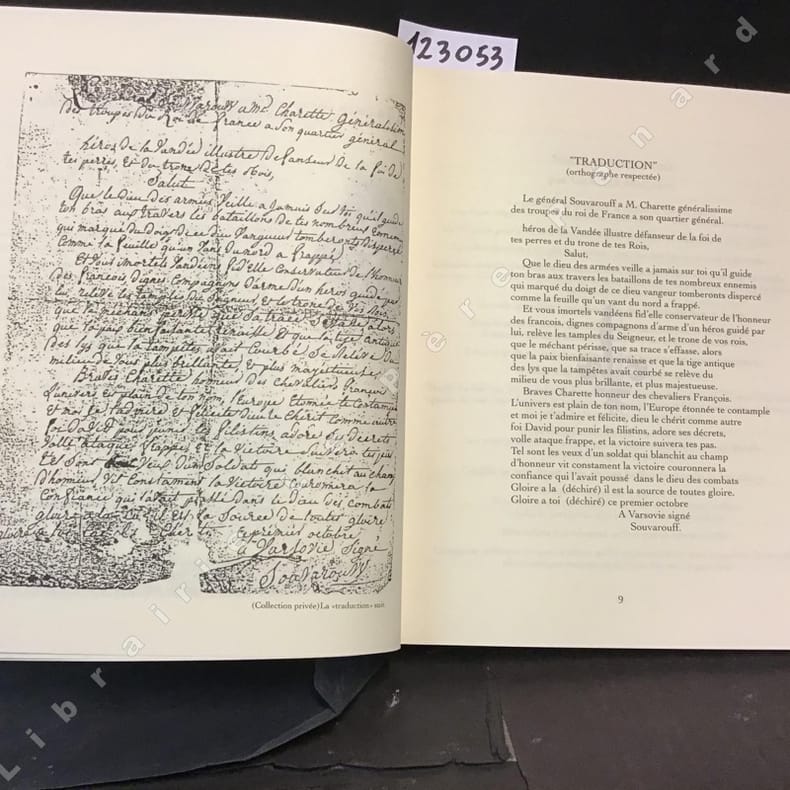 123053
Le général Souvarouw a mr. Charette généralissime
des troupes du roi de france a Son quartier général
héros de la Vandée illustre défanseur de la foi de
tes perres, Et du trone de tes Rois,
Salut
Que le dieu des armées Veille a jamais Sur toi qu'il guide
ton bras aux travers les bataillons de tes nombreux Ennemis
qui marqué du doigt de ce dieu Vangeur tomberonts dispercé
Comme la feuille qu'un Vant du nord a frappé
Et Vous imortels Vandéens fid'Elle Conservateur de l'honneur
des françois, dignes Compagnons d'arme d'un héros guidé par
lui, relevé les tamples du Seigneur Et le trone de Vos Rois
que le méchant périsse que Sa trace S'éfface alors
que la paix bienfaisante renaisse Et que la tige antique
des lys que la tampêtes avait Courbé Se Relève du
milieu de Vous plus brillante, Et plus majestueuse
Braves Charette honneur des chevaliers françois
L'univers Est plain de ton nom, l'Europe Etonnée te Contample
Et moi je t'admire Et félicite dieu le Chérit Comme autre
foi David pour punir les filistins, adore Ses décrets
Volle attaque frappe, Et la Victoire Suivera tes pas
tel Sont les Veux d'un Soldat qui blanchit au champ
D'honneur Vit Constament la Victoire Couronnera la
Confiance qui l'avait poussé dans le dieu des Combats
gloire a la il Est la Source de toutes gloire
gloire a toi ce premier octobre
a Varsovie Signé
Souvarouw
(Collection privée) La «traduction» suit
"TRADUCTION"
(orthographe respectée)
Le général Souvarouff a M. Charette généralissime
des troupes du roi de France a son quartier général.
héros de la Vandée illustre défanseur de la foi de
tes perres et du trone de tes Rois,
Salut,
Que le dieu des armées veille a jamais sur toi qu'il guide
ton bras aux travers les bataillons de tes nombreux ennemis
qui marqué du doigt de ce dieu vangeur tomberonts dispercé
comme la feuille qu'un vant du nord a frappé.
Et vous imortels vandéens fid'elle conservateur de l'honneur
des francois, dignes compagnons d'arme d'un héros guidé par
lui, relève les tamples du Seigneur, et le trone de vos rois,
que le méchant périsse, que sa trace s'effasse, alors
que la paix bienfaisante renaisse et que la tige antique
des lys que la tampêtes avait courbé se relève du
milieu de vous plus brillante, et plus majestueuse.
Braves Charette honneur des chevaliers François.
L'univers est plain de ton nom, l'Europe étonnée te contample
et moi je t'admire et félicite, dieu le chérit comme autre
foi David pour punir les filistins, adore ses décrets,
volle attaque frappe, et la victoire suivera tes pas.
Tel sont les veux d'un soldat qui blanchit au champ
d'honneur vit constament la victoire couronnera la
confiance qui l'avait poussé dans le dieu des combats
Gloire a la (déchiré) il est la source de toutes gloire.
Gloire a toi (déchiré) ce premier octobre
A Varsovie signé
Souvarouff.
9